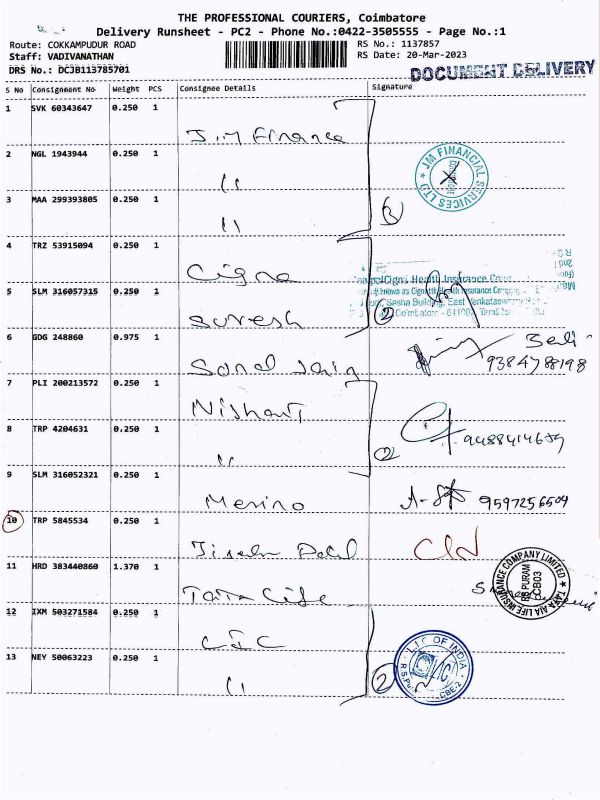 THE PROFESSIONAL COURIERS, Coimbatore
Delivery Runsheet - PC2 - Phone No.:0422-3505555 - Page No.:1
Route: COKKAMPUDUR ROAD RS No.: 1137857
Staff: VADIVANATHAN RS Date: 20-Mar-2023
DRS No.: DCJB113785701 DOCUMENT DELIVERY
S No Consignment No Weight PCS Consignee Details Signature
1 SVK 60343647 0.250 1 J.M Finance
2 NGL 1943944 0.250 1 "
JM FINANCIAL SERVICES LTD COIMBATORE
3 MAA 299393805 0.250 1 " 3
4 TRZ 53915094 0.250 1 Cigna
5 SLM 316057315 0.250 1 Suresh 2
6 GDG 248860 0.975 1 Sonal Jain 9384788198
7 PLI 200213572 0.250 1 Nishant
8 TRP 4204631 0.250 1 " 2
9 SLM 316052321 0.250 1 Merino 9597256504
10 TRP 5845534 0.250 1
11 HRD 383440860 1.370 1 Tata Life
TATA AIA LIFE INSURANCE COMPANY LIMITED RS PURAM CB03
12 IXM 503271584 0.250 1 LIC
13 NEY 50063223 0.250 1 " 2
L.I.C OF INDIA CBE-2